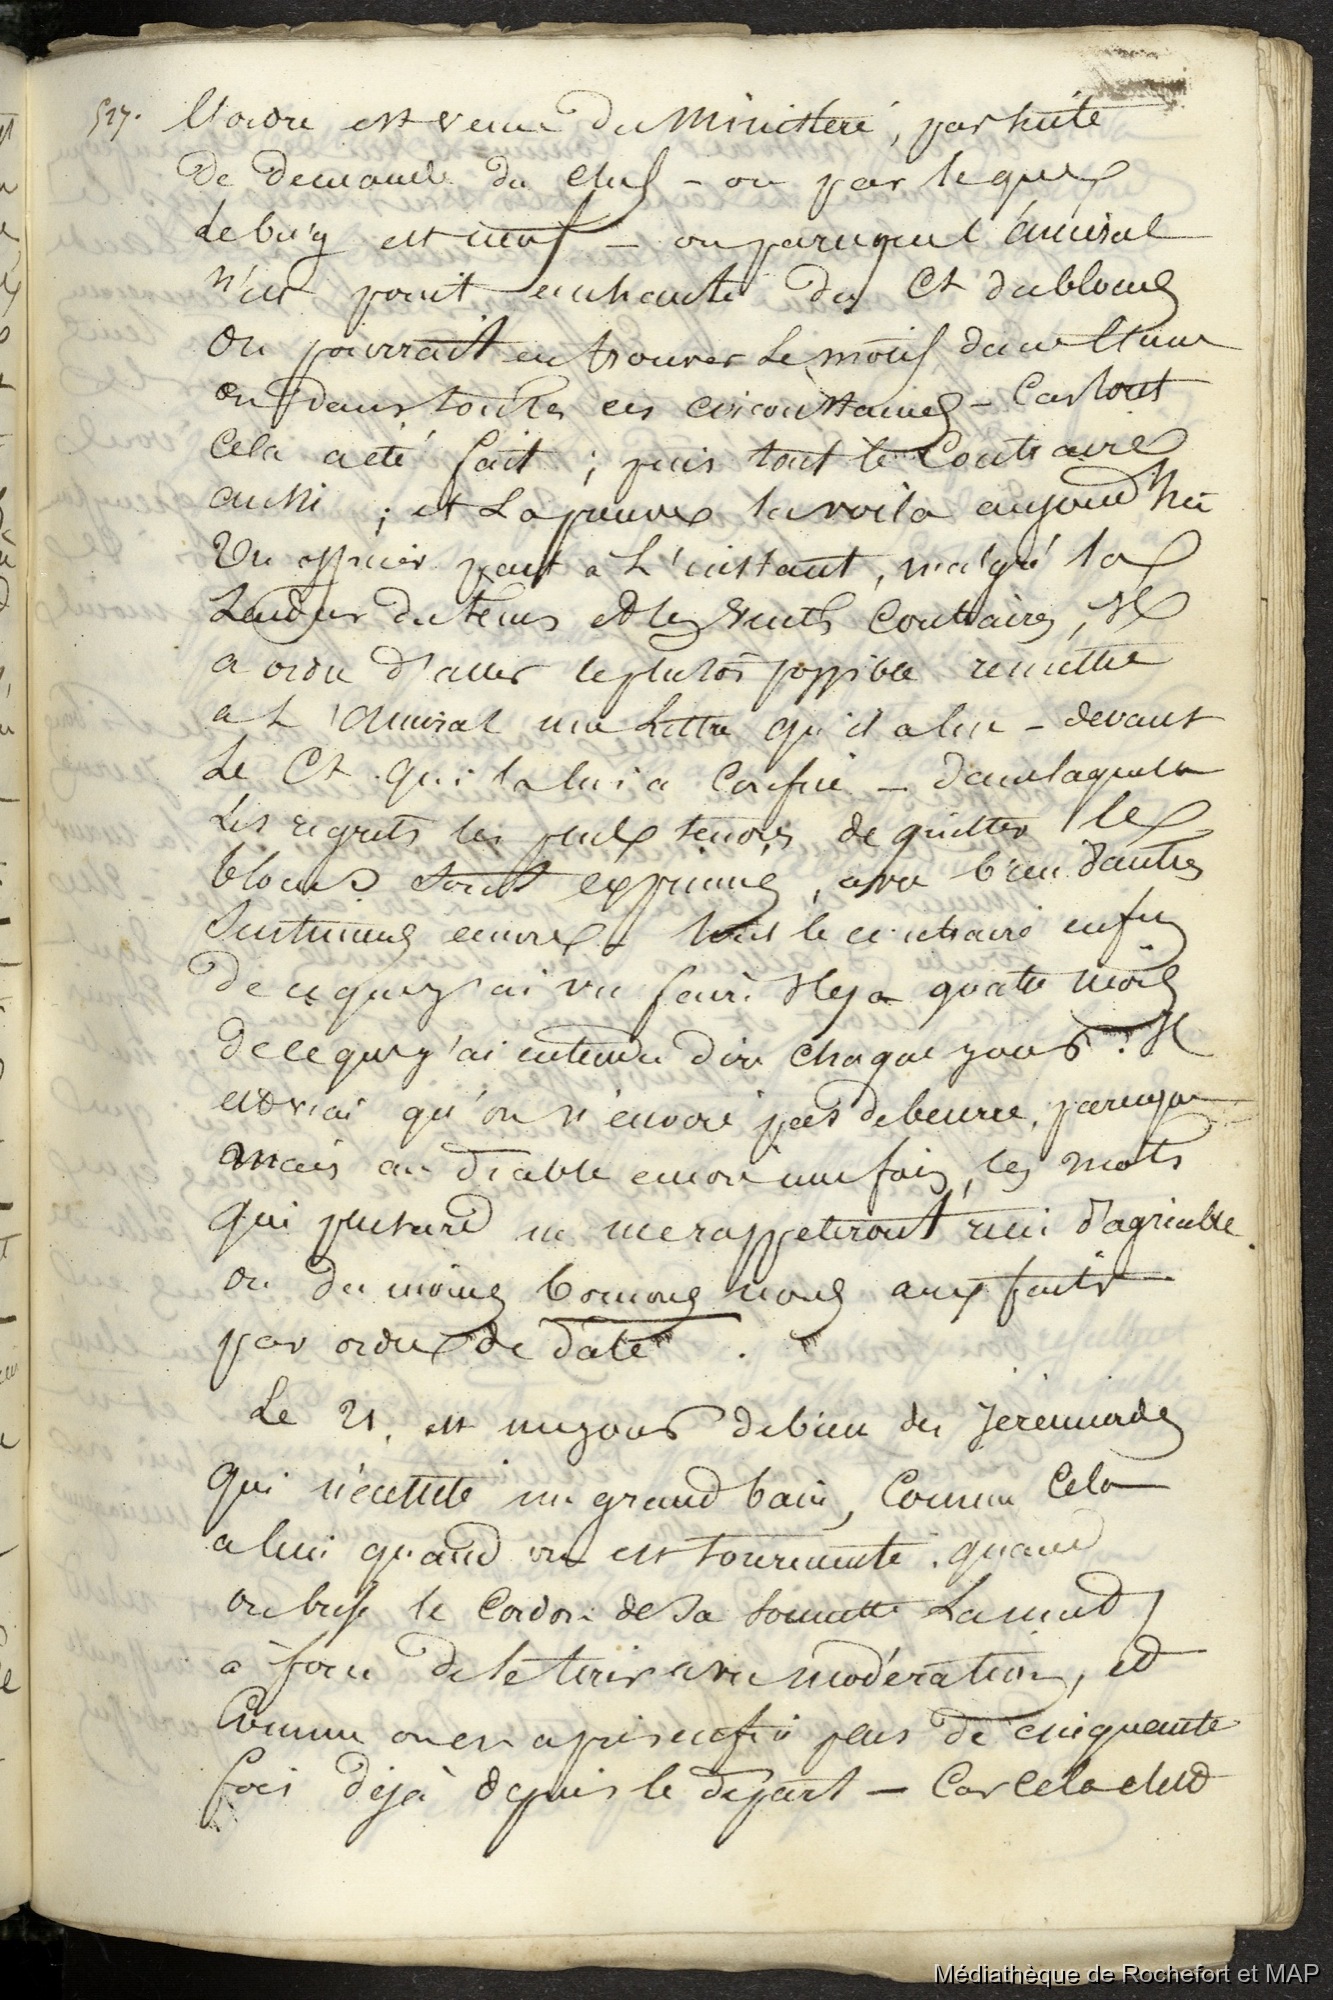 527. L'ordre est venu du Ministère, par suite
de demande du chef – ou parceque
Le brig est neuf – ou parceque l'amiral
n'est point enchanté du Ct du blocus
On pourrait en trouver le motif dans l'une
ou dans toutes ces circonstances – Car tout
cela a été fait ; puis tout le Contraire
aussi ; et La preuve la voilà aujourd'hui
Un officier part à L'instant, malgré la
du tems et les vents Contraires, Il
a ordre d'aller le plutôt possible remettre
a L'amiral une Lettre qu'il a lue – devant
Le Ct qui la lui a Confié – dans laquelle
Les regrets les plus tendres de quitter le
blocus sont exprimés, avec bien d'autres
Sentimens encore – tout le contraire enfin
de ce que j'ai vu faire Il y a quatre mois
de ce que j'ai entendu dire Chaque jour. Il
est vrai qu'on n'envoie pas de beurre,
mais au diable encore une fois, les mots
qui plus tard ne me rappeleront rien d'agréable.
ou du moins bornons nous aux faits
par ordre de date.
Le 21, est un jour de bien des jérémiades
qui nécessite un grand bain, Comme Cela
a lieu quand on est tourmenté. quand
on brise le Cordon de sa sonnette La nuit,
à force de le tirer avec modération, et
Comme on en a pris enfin plus de cinquante
fois déjà depuis le départ – Car Cela
Médiathèque de Rochefort et MAP